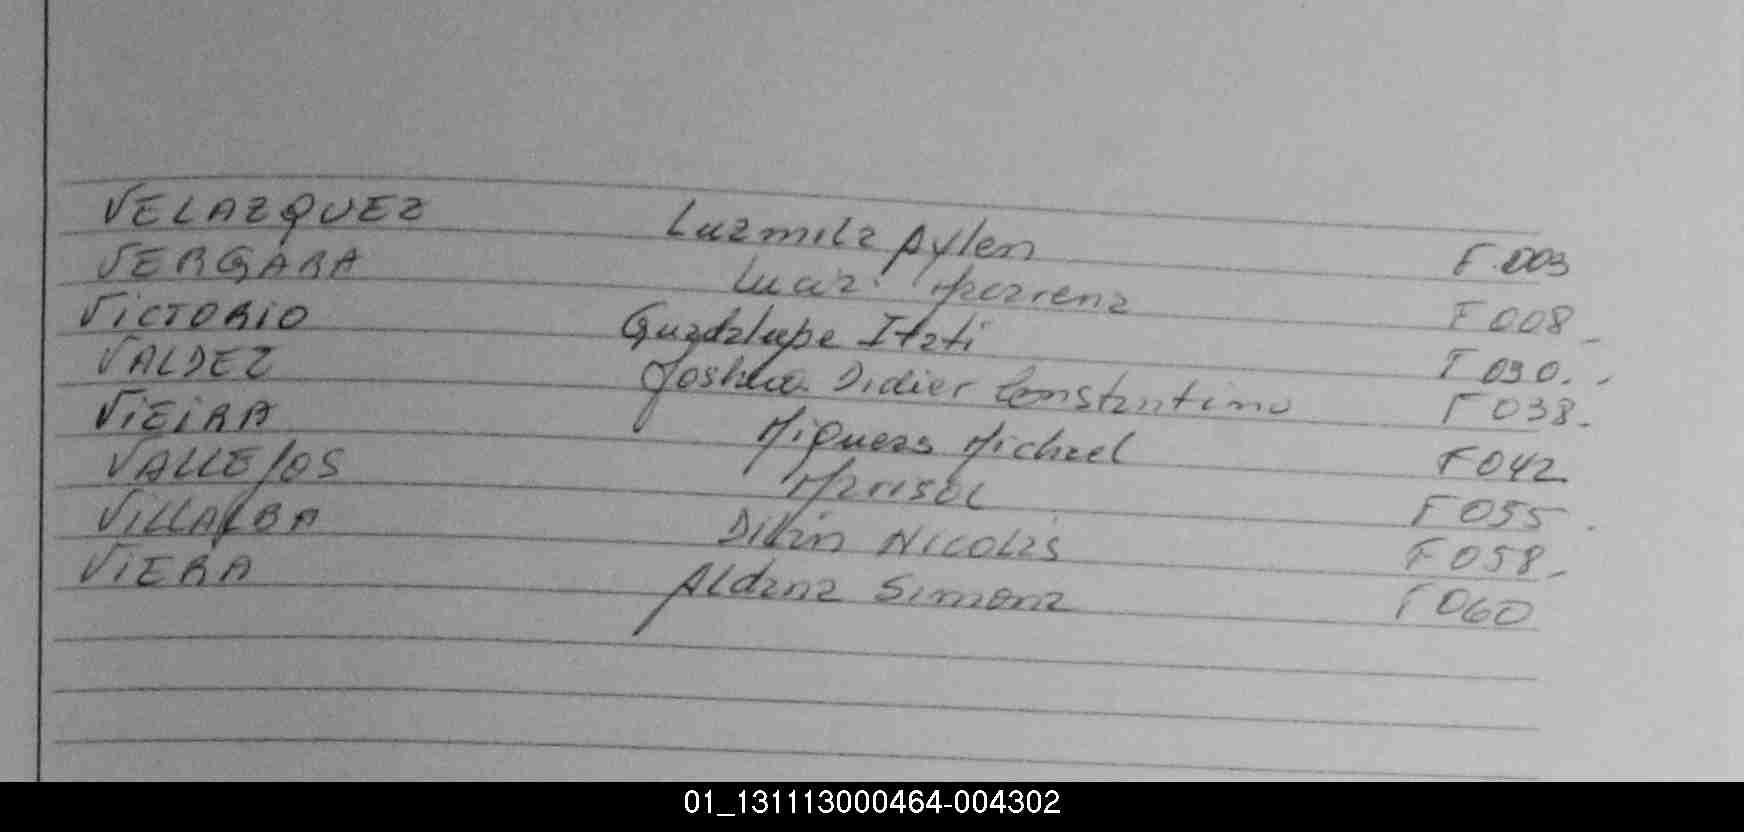 VELAZQUEZ Luzmila Aylen F.003
VERGARA Lucia Macarena F008
ViCTORiO Guadalupe Itati F030.
VALDEZ Joshua Didier Constantino F038.
ViEiRA Michael F042
VALLEJOS Marisol F055
ViLLALBA Dilan Nicolas F058
ViERA Aldana Simona F060
01_131113000464-004302